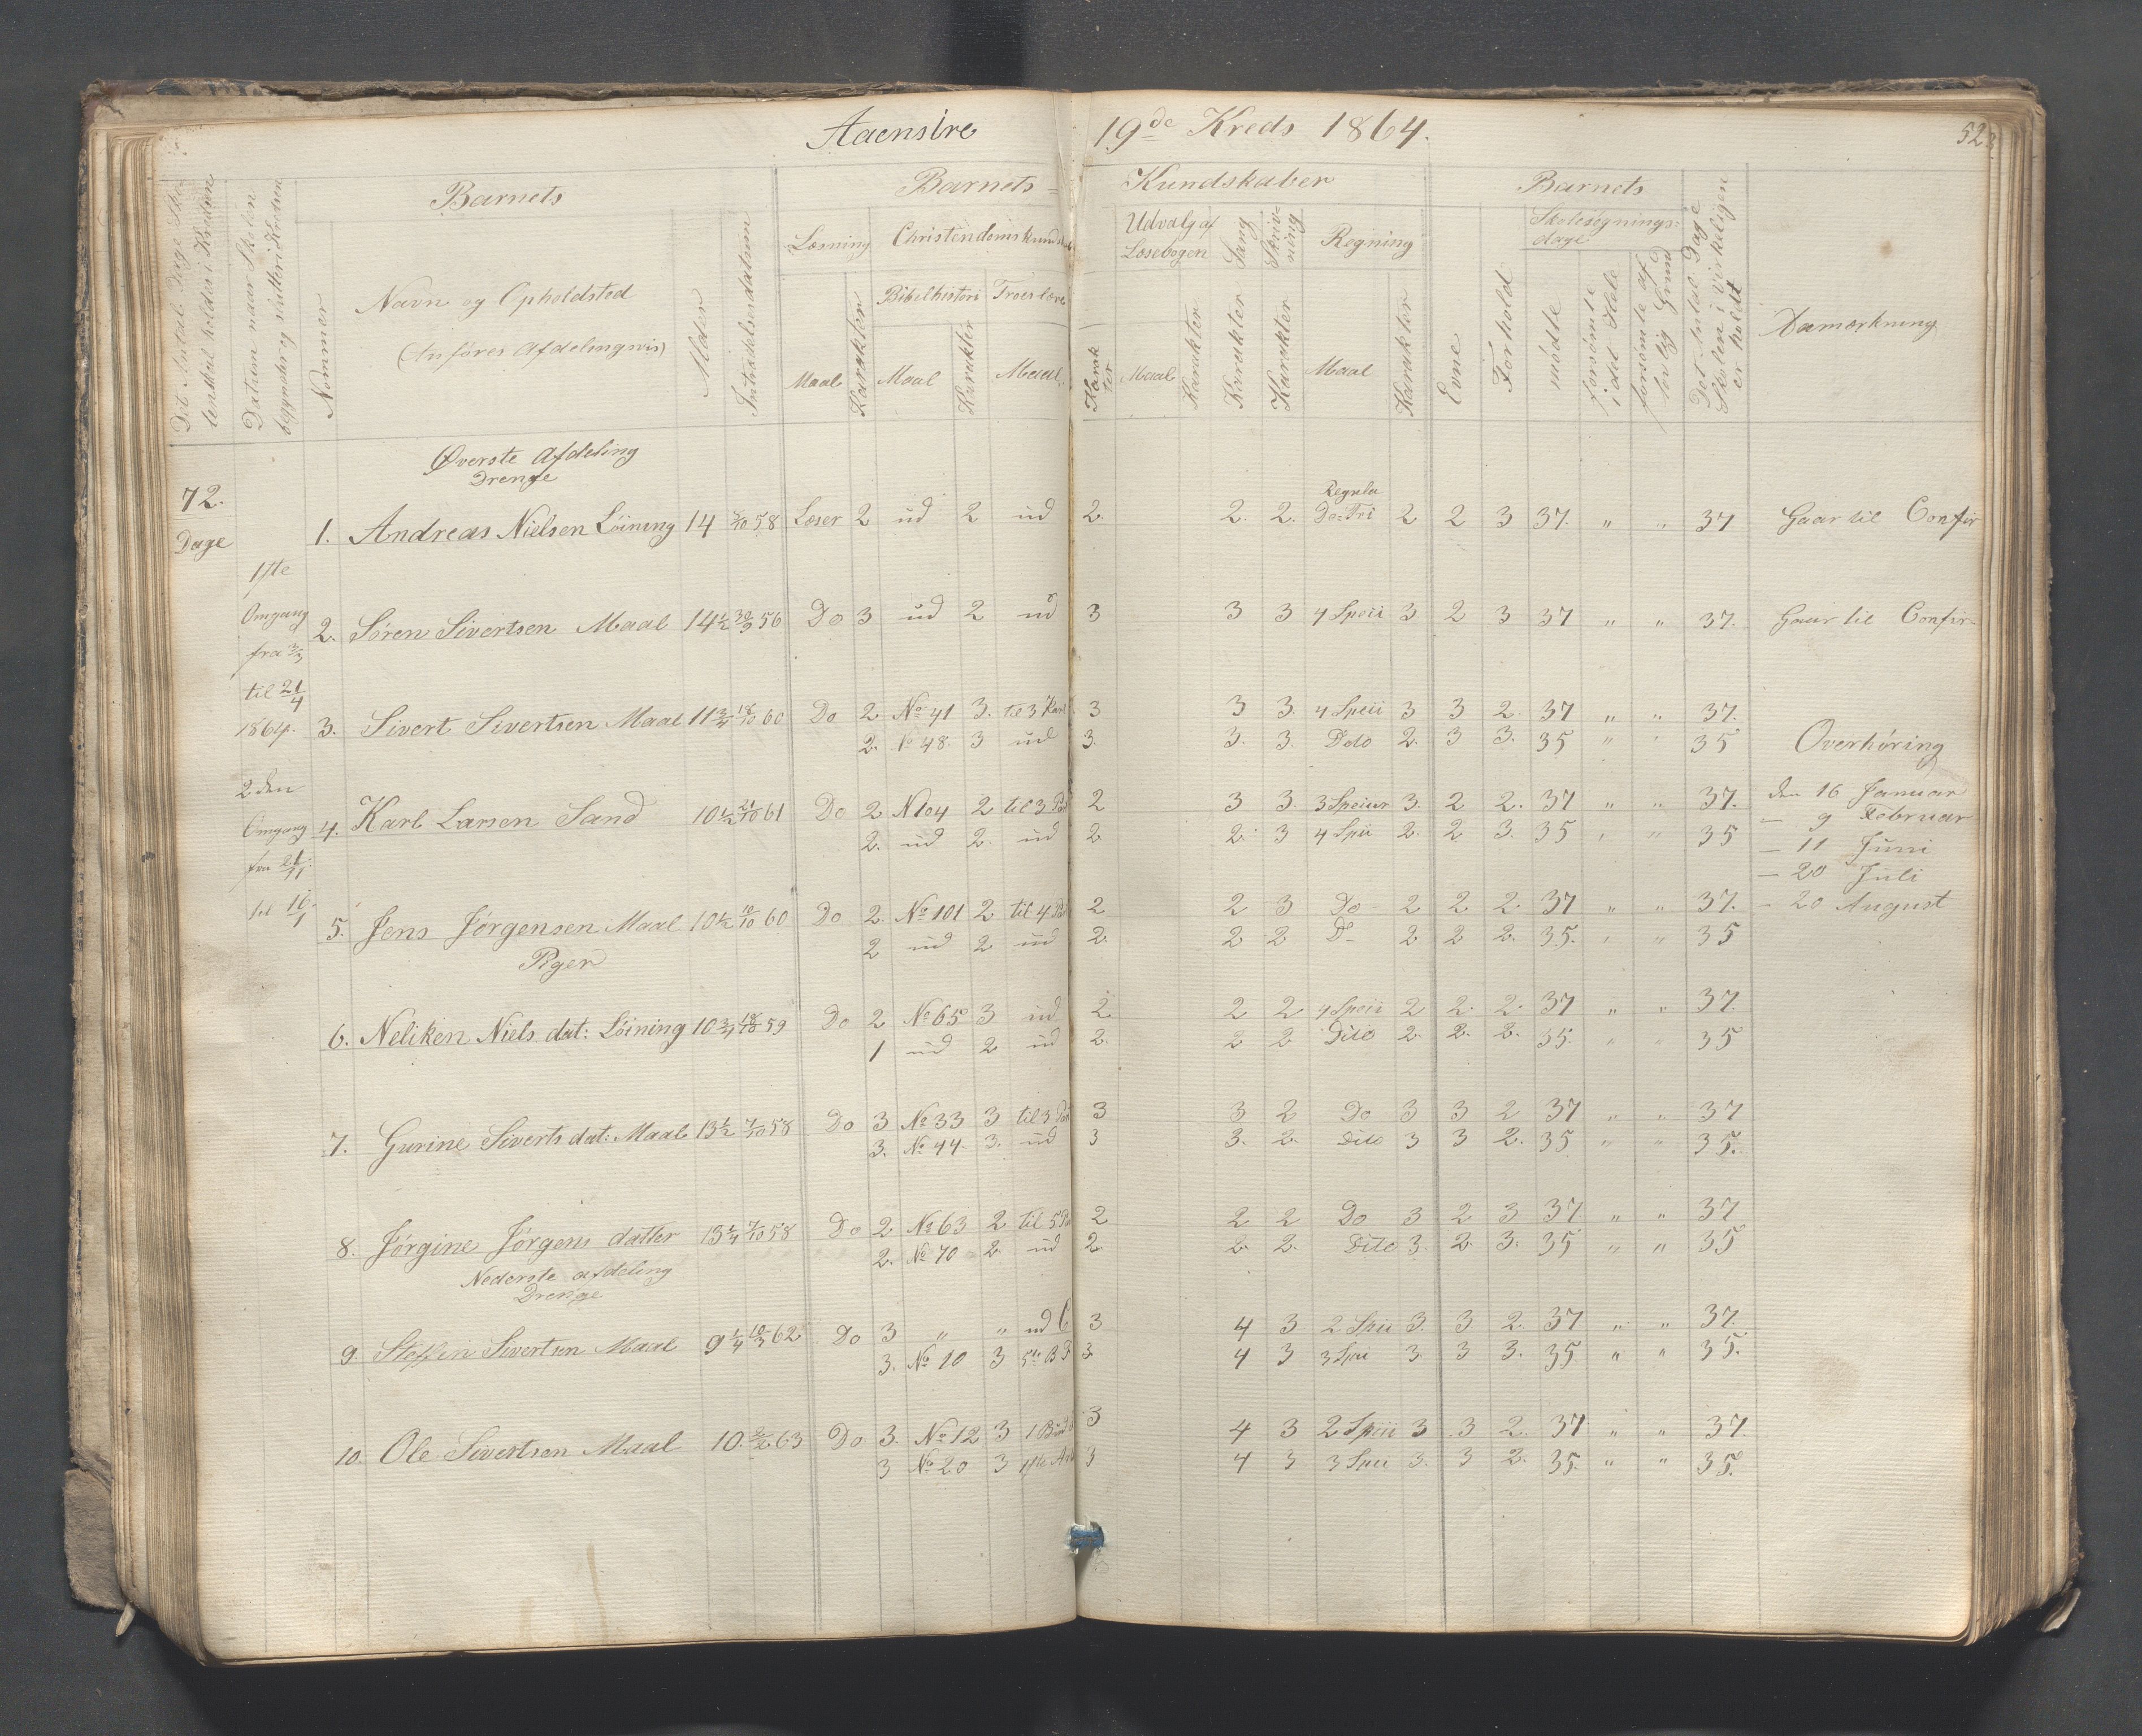 Aaensire 19de Kreds 1864.
Barnets Barnets Kundskaber Barnets
Det Antal Dage Skolen skal holdes i Kredsen
Datum naar Skolen begynder og slutter i Kredsen
Nommer
Navn og Opholdsted
(Anføres Afdelingsvis)
Alder
Indtrædelsesdatum
Læsning Christendomskundskab
Maal Karakter
Bibelhistori Troeslære
Maal Karakter Maal
Karakter
Udvalg af Læsebogen
Maal Karakter
Sang Karakter
Skrivning Karakter
Regning
Maal Karakter
Evne
Forhold
Skolesøgningsdage
mødte
forsømte i det Hele
forsømte af lovlig Grund
Det Antal Dage Skolen i Virkeligen er holdt
Anmærkning
72.
Dage
1ste
Omgang
fra 3/3
til 21/4
1864.
2den
Omgang
fra 21/11
til 10/1
Øverste Afdeling
Drenge
Regula
1. Andreas Nielsen Löining 14 8/10 58 Læser 2 ud 2 ud 2. 2. 2. De Tri 2 2 3 37. " " 37 Gaar til Confir
2. Søren Sivertsen Maal 14 1/2 30/9 56 Do 3 ud 2 ud 3 3 3 4 Speii 3 2 3 37 " " 37. Gaar til Confir
3. Sivert Sivertsen Maal 11 3/4 18/10 60 Do 2 No 41 3. til 3 Kart 3 3 3. 4 Speii 3 3 2. 37 " " 37.
2. No 48. 3 ud 3. 3. 3. Doto 2. 3 3. 35 " " 35 Overhøring
4. Karl Larsen Sand 10 1/2 21/10 61 Do 2 N 104 2 til 3 Part 2 3 3. 3 Speier 3. 2 2. 37 " " 37. den 16 Januar
— 9 Februar
2. ud 2. ud 2. 2. 3 4 Spii 2. 2 3. 35 " " 35 — 11 Juni
— 20 Juli
5. Jens Jørgensen Maal 10 1/2 10/10 60 Do 2. No 101 2 til 4 Part 2 2 3 Do 2 2 2. 37 " " 37. — 20 August
2 ud 2 ud 2. 2 2 D- 2 2 2. 35. " " 35
Piger
6. Neliken Niels dat: Löining 10 3/4 18/10 59 Do 2 No 65 3 ud 2. 2 2 4 Speii 2 2. 2. 37 " " 37.
1 ud 2 ud 2. 2 2 Dito 2. 2. 2. 35. " " 35
7. Gurine Siverts dat: Maal 13 1/2 7/10 58 Do 3 No 33 3 til 3 Part 3 3 2 Do 3 3 2 37 " " 37
3. No 44. 3. ud 3 3. 2. Dito 3 3 2. 35 " " 35.
8. Jørgine Jørgens datter 13 1/4 7/10 58 Do 2 No 63 2 til 5 Pa 2 2 2 Do 3 2 3 37 " " 37
2. No 70 2. ud 2. 2. 2. Dito 3. 2. 3. 35 " " 35
Nederste afdeling
Drenge
9. Steffen Sivertsen Maal 9 1/4 10/3 62 Do 3 " " ud 3 4 3 2 Speii 3. 3 2. 37 " " 37.
3. No 10 3 5te B 3 4 3 3 Speii 3. 3 3. 35 " " 35.
10. Ole Sivertsen Maal 10. 2/2 63 Do 3. No 12 3 1 Bud 3 4 3 2 Speii 3 3 2. 37 " " 37.
3 No 20 3 1ste Art 3 4 3 3 Speii 3. 3 2. 35. " " 35.